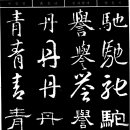 馳 譽 丹 青
馳 譽 丹 青
馳 譽 丹 青
馳 譽 丹 青